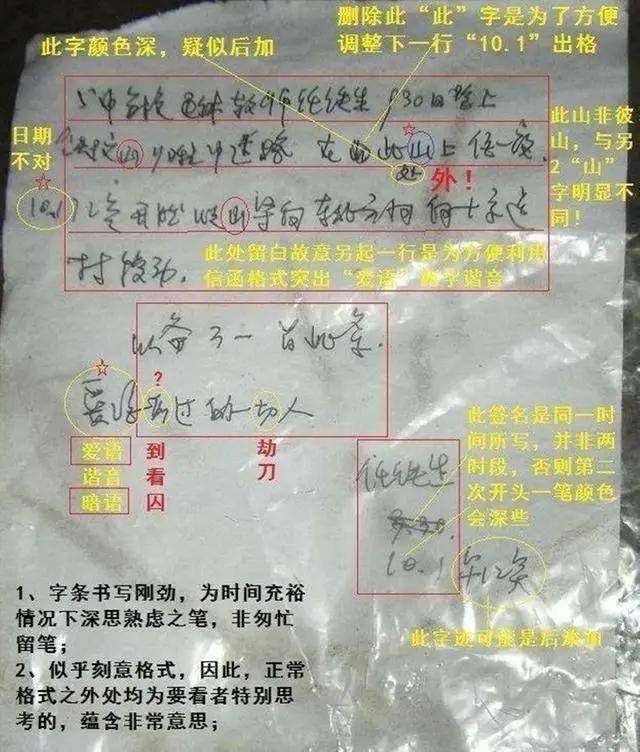 删除此“此”字是为了方便
调整下一行“10.1”出格
此字颜色深，疑似后加
任铁生 930日晚上
日期
不对
山 中迷路 在 此山上住一夜.
处
此山非彼
山，与另
2“山”
字明显不
同！
外！
10.1 12点开始 山梁向东北方向
此处留白故意另起一行是为方便利用
信函格式突出“爱语”两字谐音
村移动.
以备万一留此条.
?
过的一切人
爱语
谐音
暗语
到
看
囚
劫
刀
此签名是同一时
间所写，并非两
时段，否则第二
次开头一笔颜色
会深些
任铁生
9.30.
10.1
此字迹可能是后添加
1、字条书写刚劲，为时间充裕
情况下深思熟虑之笔，非匆忙
留笔；
2、似乎刻意格式，因此，正常
格式之外处均为要看者特别思
考的，蕴含非常意思；